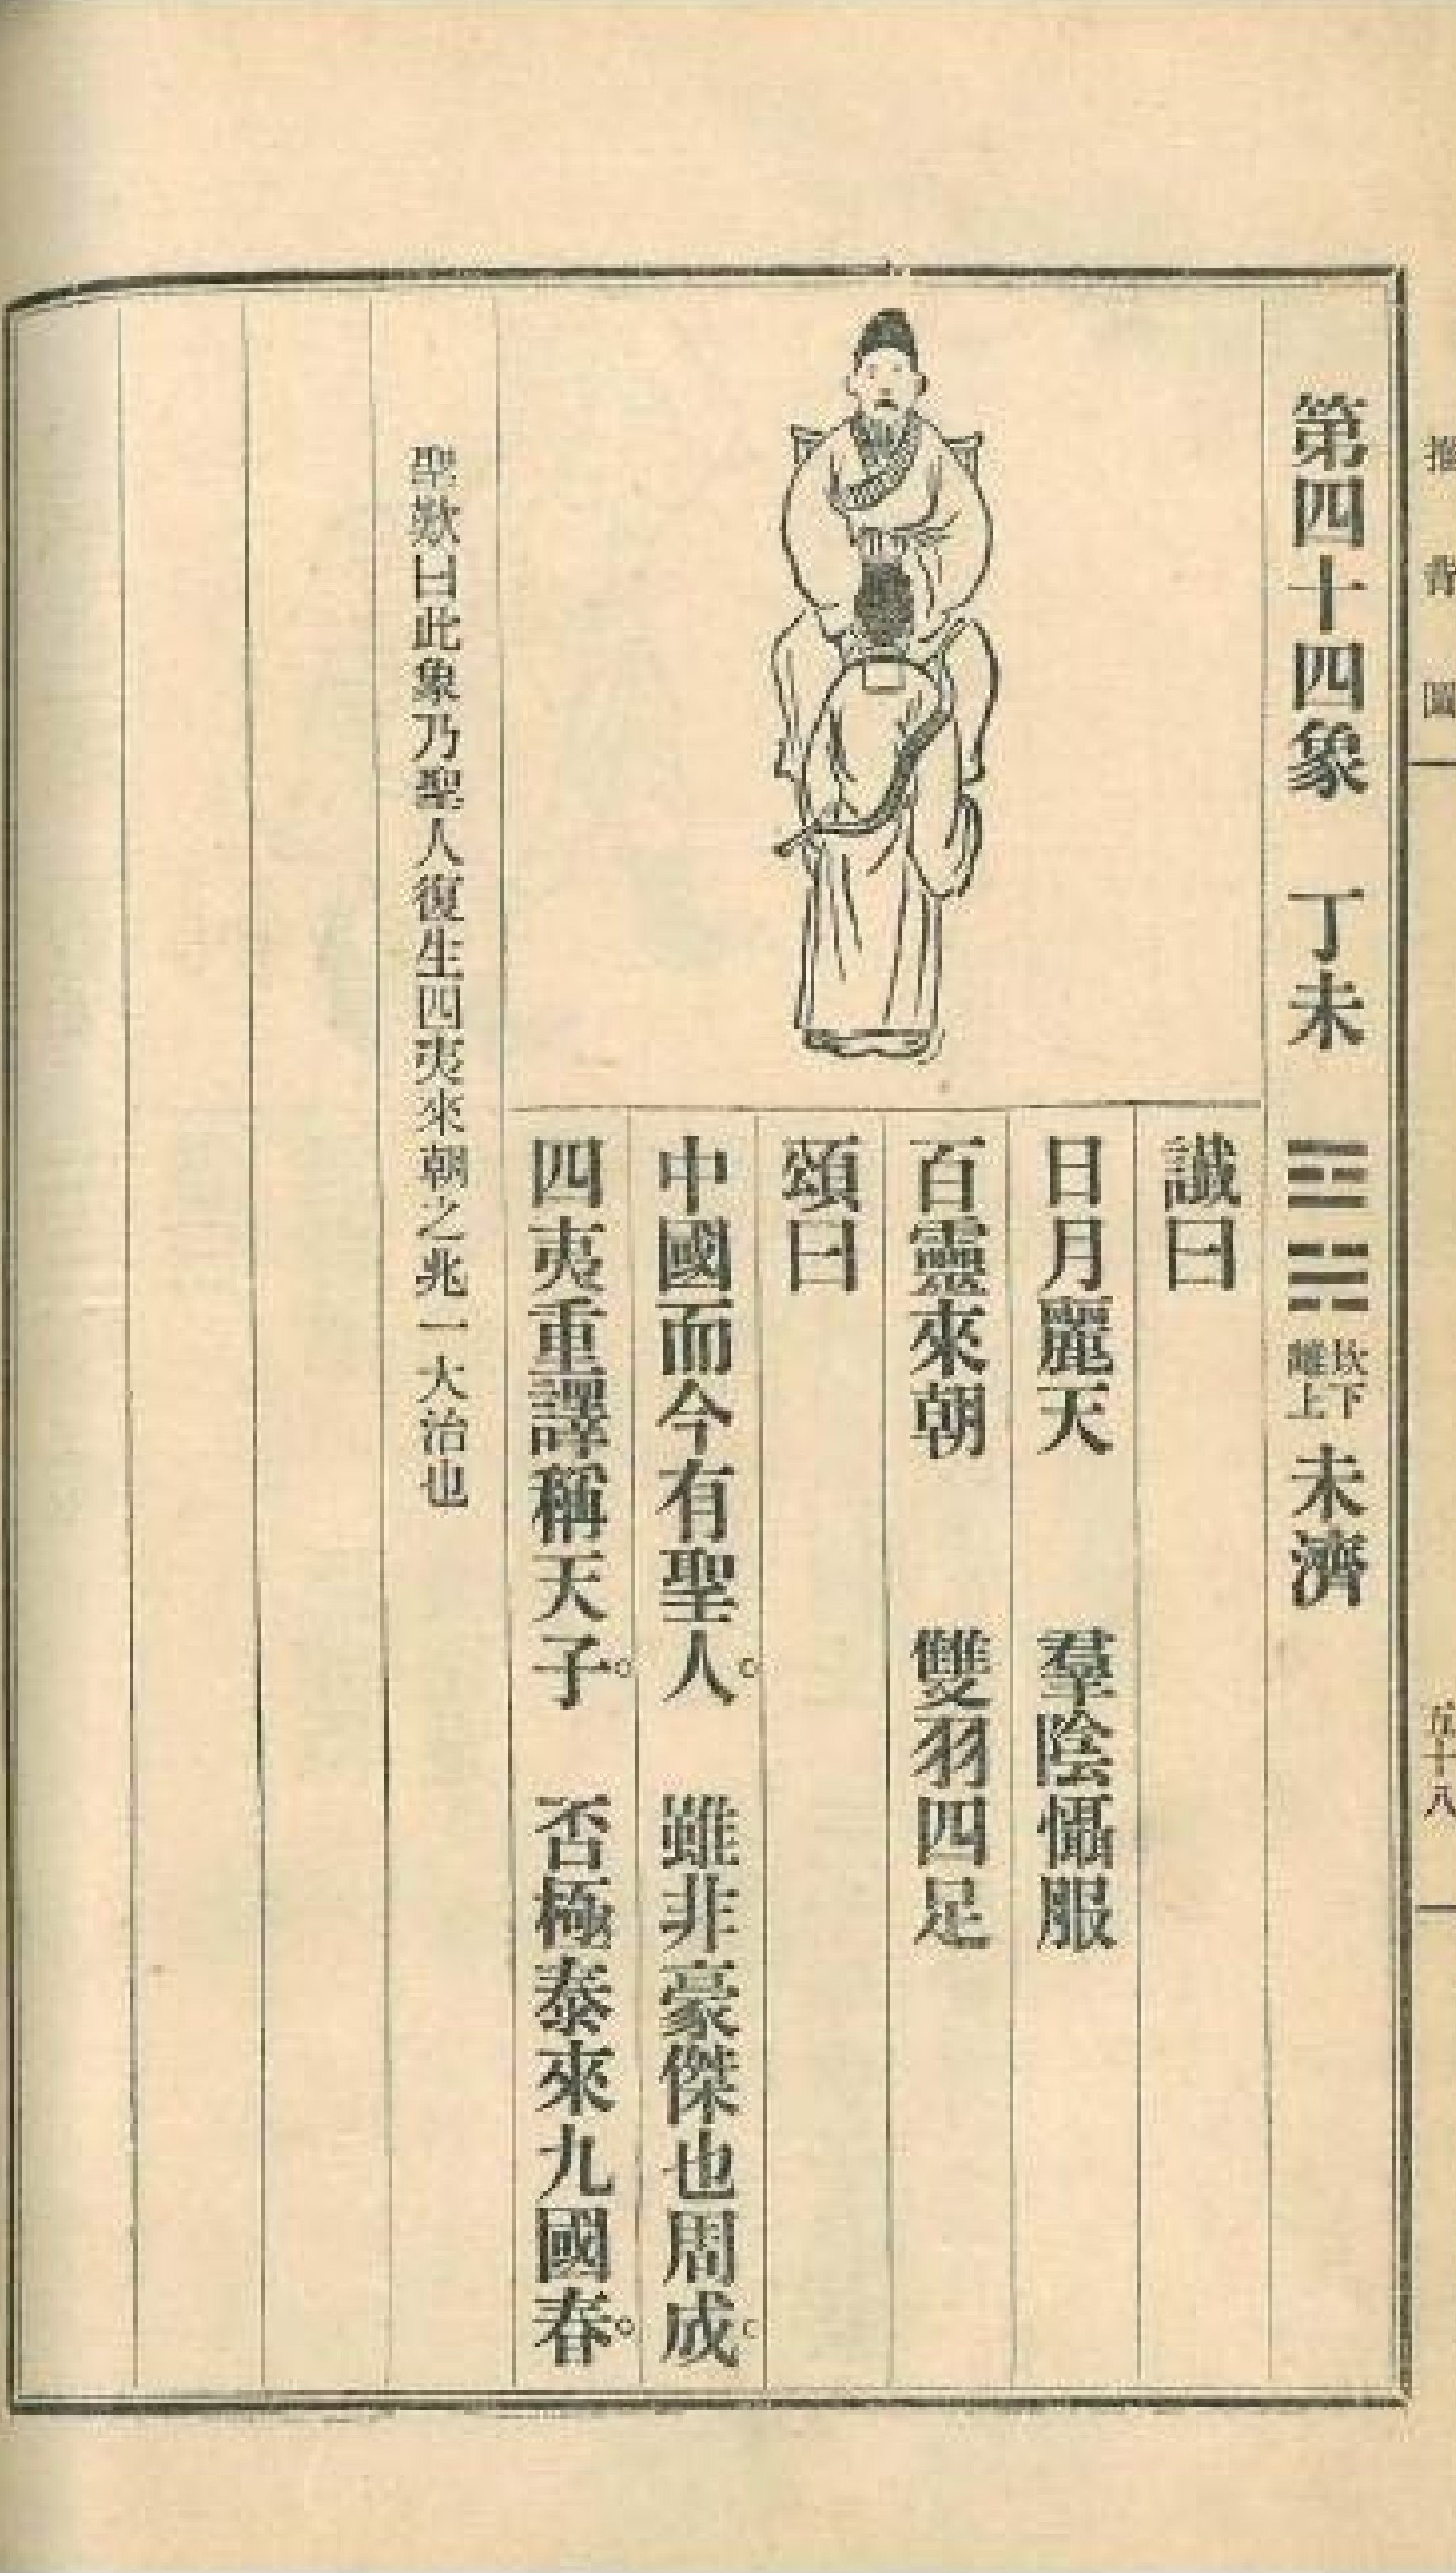 推背圖
五十八
第四十四象 丁未 ䷿ 坎下離上 未濟
讖曰
日月麗天 羣陰懾服
百靈來朝 雙羽四足
頌曰
中國而今有聖人。 雖非豪傑也周成。
四夷重譯稱天子。 否極泰來九國春。
聖歎曰此象乃聖人復生四夷來朝之兆一大治也